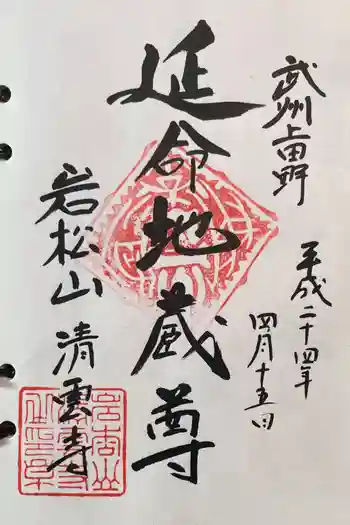 武州上田野
平成二十四年
四月十五日
延命地蔵尊
岩松山 清雲寺